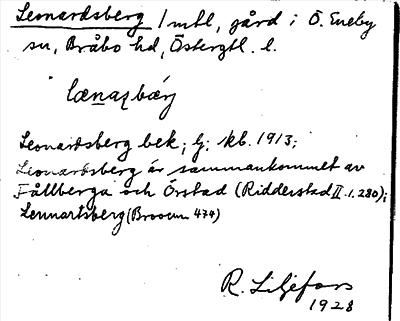 Leonardsberg 1 mtl, gård i Ö. Eneby
sn, Bråbo hd, Östergtl. l.
Leonardsberg bek; G: kb. 1913;
Leonardsberg är sammankommet av
Fållberga och Örstad (Ridderstad II.1.280);
Lennartsberg (Broocm 474)
R. Liljefors
1928